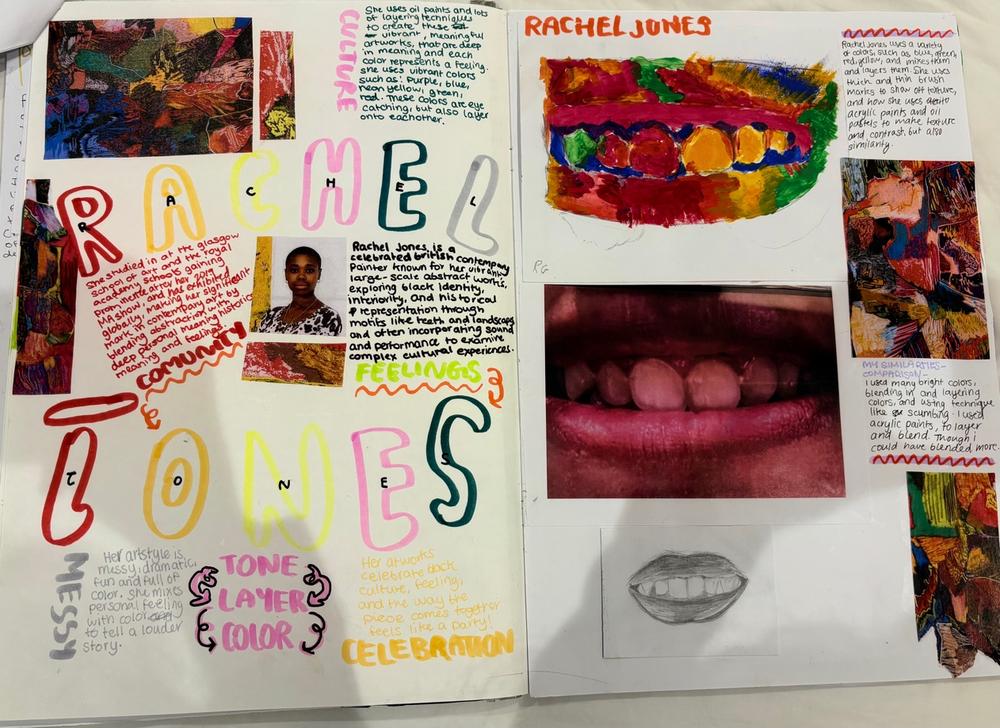 CULTURE
She uses oil paints and lots
of layering techniques
to create these
vibrant, meaningful
artworks, that are deep
in meaning and each
color represents a feeling.
she uses vibrant colors
such as: Purple, blue,
neon yellow, green,
red. These colors are eye
catching, but also layer
onto eachother.
RACHEL
R A C H E L
She studied in at the glasgow
school of art and the royal
academy schools gaining
prominence after her 2019
UK show and has exhibited
globally, making her significant
mark in contempary art by
blending abstraction with historic
deep personal meaning
meaning and feeling!
COMUNITY
Rachel Jones is a
celebrated british contempary
Painter known for her vibrant
large-scale abstract works,
exploring black identity,
interiority, and historical
representation through
motifs like teeth and landscaps
and often incorporating sound
and performance to examine
complex cultural experiences.
FEELINGS
JONES
J O N E S
MESSY
Her artstyle is
messy, dramatic,
fun and full of
color. she mixes
personal feeling
with color
to tell a louder
story.
TONE
LAYER
COLOR
Her artworks
celebrate back
culture, feeling,
and the way the
piece comes together
feels like a party!
CELEBRATION
RACHEL JONES
Rachel Jones uses a variety
of colors, such as, blue, green,
red, yellow, and mixes them
and layers them. She uses
thick and thin brush
marks to show off texture,
and how she uses
acrylic paints and oil
pastels to make texture
and contrast, but also
similarity.
RG
MY SIMILARTIES-
COMPARISON-
I used many bright colors,
blending in and layering
colors, and using technique
like scumbing. I used
acrylic paints, to layer
and blend. Though i
could have blended more.